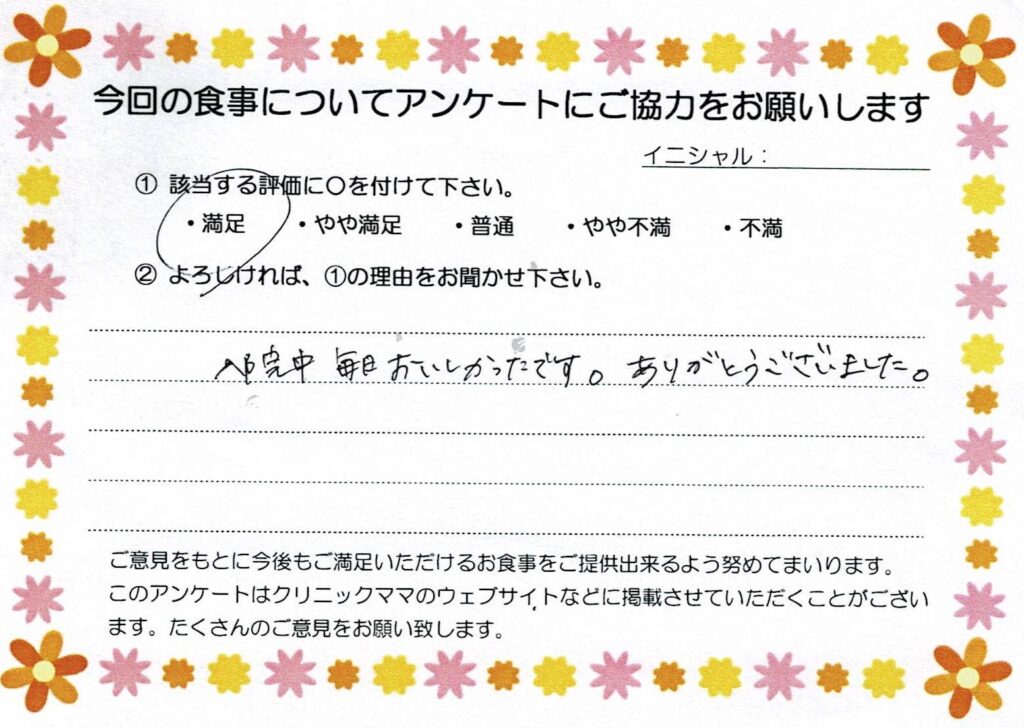 今回の食事についてアンケートにご協力をお願いします
イニシャル：
① 該当する評価に〇を付けて下さい。
・満足 ・やや満足 ・普通 ・やや不満 ・不満
② よろしければ、①の理由をお聞かせ下さい。
入院中 毎日 おいしかったです。ありがとうございました。
ご意見をもとに今後もご満足いただけるお食事をご提供出来るよう努めてまいります。
このアンケートはクリニックママのウェブサイトなどに掲載させていただくことがござい
ます。たくさんのご意見をお願い致します。